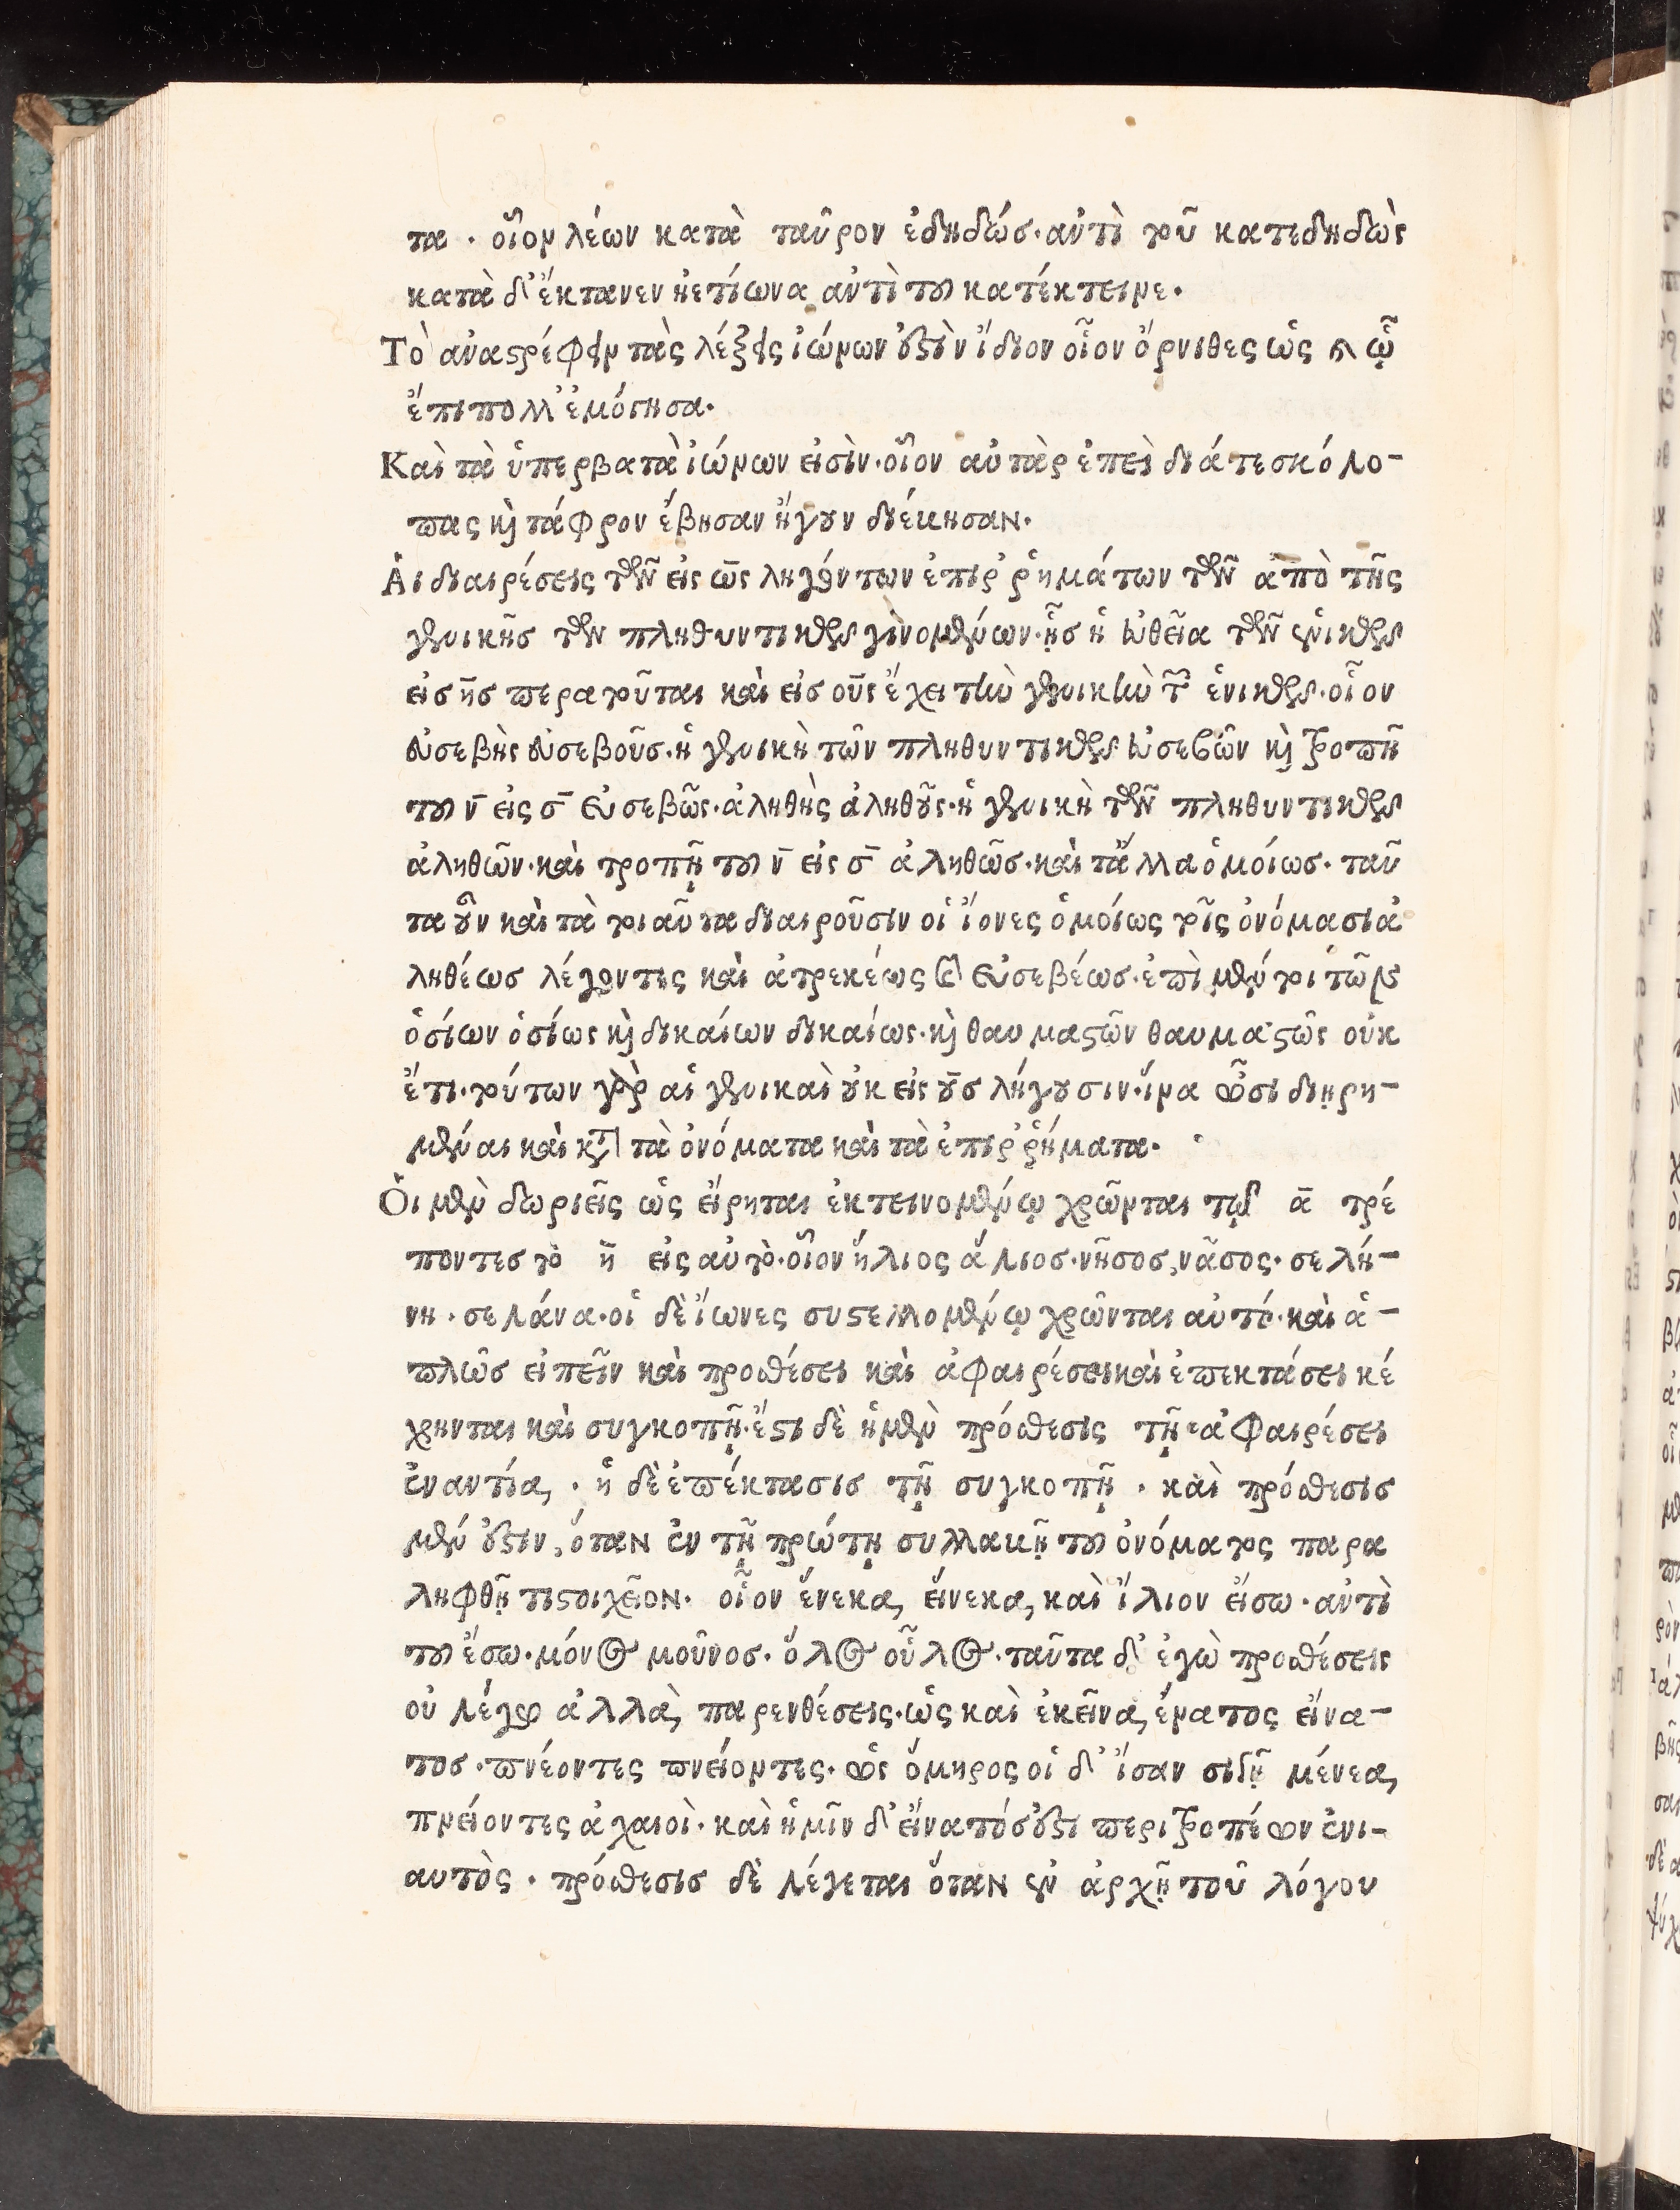 τα · οἷον λέων κατὰ ταῦρον ἐδηδώσ·αὐτὶ τοῦ κατεδηδὼς
κατὰ δ' ἔκτανεν ἠετίωνα αὐτὶ του κατέκτεινε·
Τὸ αναστρέφειν τὰς λέξεις ἰώνων ἐστὶν ἴδιον οἷον ὄρνιθες ὣς ᾧ
ἔπι πολλ' ἐμόγησα·
Καὶ τὰ ὑπερβατὰ ἰώνων εἰσὶν·οἷον αὐτὰρ ἐπεὶ διάτεσκόλο-
πας καὶ τάφρον ἔβησαν ἤγουν διέβησαν·
Ἁι διαιρέσεις τῶν εἰς ως ληγόντων ἐπιῤῥημάτων τῶν ἀπὸ τῆς
γενικῆσ τῶν πληθυντικῶν γινομένων·ἧσ ἡ εὐθεῖα τῶν ἑνικῶν
εἰσ ησ περατοῦται καὶ εἰσ οῦς ἔχει τὴν γενικὴν τῶν ἑνικῶν·οἷον
εὐσεβὴς εὐσεβοῦσ·ἡ γενικὴ τῶν πληθυντικῶν εὐσεβῶν καὶ τροπῆ
του ν εἰς σ εὐσεβῶς·ἀληθὴς ἀληθοῦς·ἡ γενικὴ τῶν πληθυντικῶν
ἀληθῶν·καὶ τροπῇ του ν εἰς σ ἀληθῶσ·καὶ τἄλλα ὁμοίωσ· ταῦ
τα οὖν καὶ τὰ τοιαῦτα διαιροῦσιν οἱ ἴονες ὁμοίως τοῖς ὀνόμασι ἀ
ληθέωσ λέγοντες καὶ ἀτρεκέως καὶ εὐσεβέωσ·ἐπὶ μέν τοι τῶν
ὁσίων ὁσίως καὶ δικαίων δικαίως·καὶ θαυμαστῶν θαυμαστῶς οὐκ
ἔτι·τούτων γὰρ αἱ γενικαὶ οὐκ εἰς οῦσ λήγουσιν·ἵνα ὦσι διῃρη-
μέναι καὶ κατὰ τὰ ὀνόματα καὶ τὰ ἐπιῤῥήματα·
Ὁι μὲν δωριεῖς ὡς εἴρηται ἐκτεινομένῳ χρῶνται τῷ ᾱ τρέ
ποντεσ τὸ η εἰς αὐτὸ·οἷον ἥλιος ἅλιοσ·νῆσοσ, νᾶσος· σελή-
νη · σελάνα·οἱ δὲ ἴωνες συστελλομένῳ χρῶνται αὐτό·καὶ ἁ-
πλῶσ εἰπεῖν καὶ προσθέσει καὶ ἀφαιρέσει καὶ ἐπεκτάσει κέ
χρηνται καὶ συγκοπῇ·ἔστι δὲ ἡ μὲν πρόσθεσις τῇ ἀφαιρέσει
ἐναντία, · ἡ δὲ ἐπέκτασισ τῇ συγκοπῇ · καὶ πρόσθεσισ
μέν ἐστιν, ὅταν ἐν τῇ πρώτῃ συλλαβῇ του ὀνόματος παρα
ληφθῇ τι στοιχεῖον· οἷον ἕνεκα, εἵνεκα, καὶ ἴλιον εἴσω·αὐτὶ
του ἔσω·μόνος μοῦνοσ· ὅλος οὖλος·ταῦτα δ' ἐγὼ προσθέσεις
οὐ λέγω ἀλλὰ, παρενθέσεις·ὡς καὶ ἐκεῖνα, ἔνατος εἴνα-
τοσ·πνέοντες πνείοντες· ὡς ὅμηρος οἱ δ' ἴσαν σιδῇ μένεα,
πνείοντες ἀχαιοὶ·καὶ ἡμῖν δ' εἴνατόσ ἐστι περιτροπέων ἐνι-
αυτὸς · πρόσθεσισ δὲ λέγεται ὅταν ἐν ἀρχῇ τοῦ λόγου